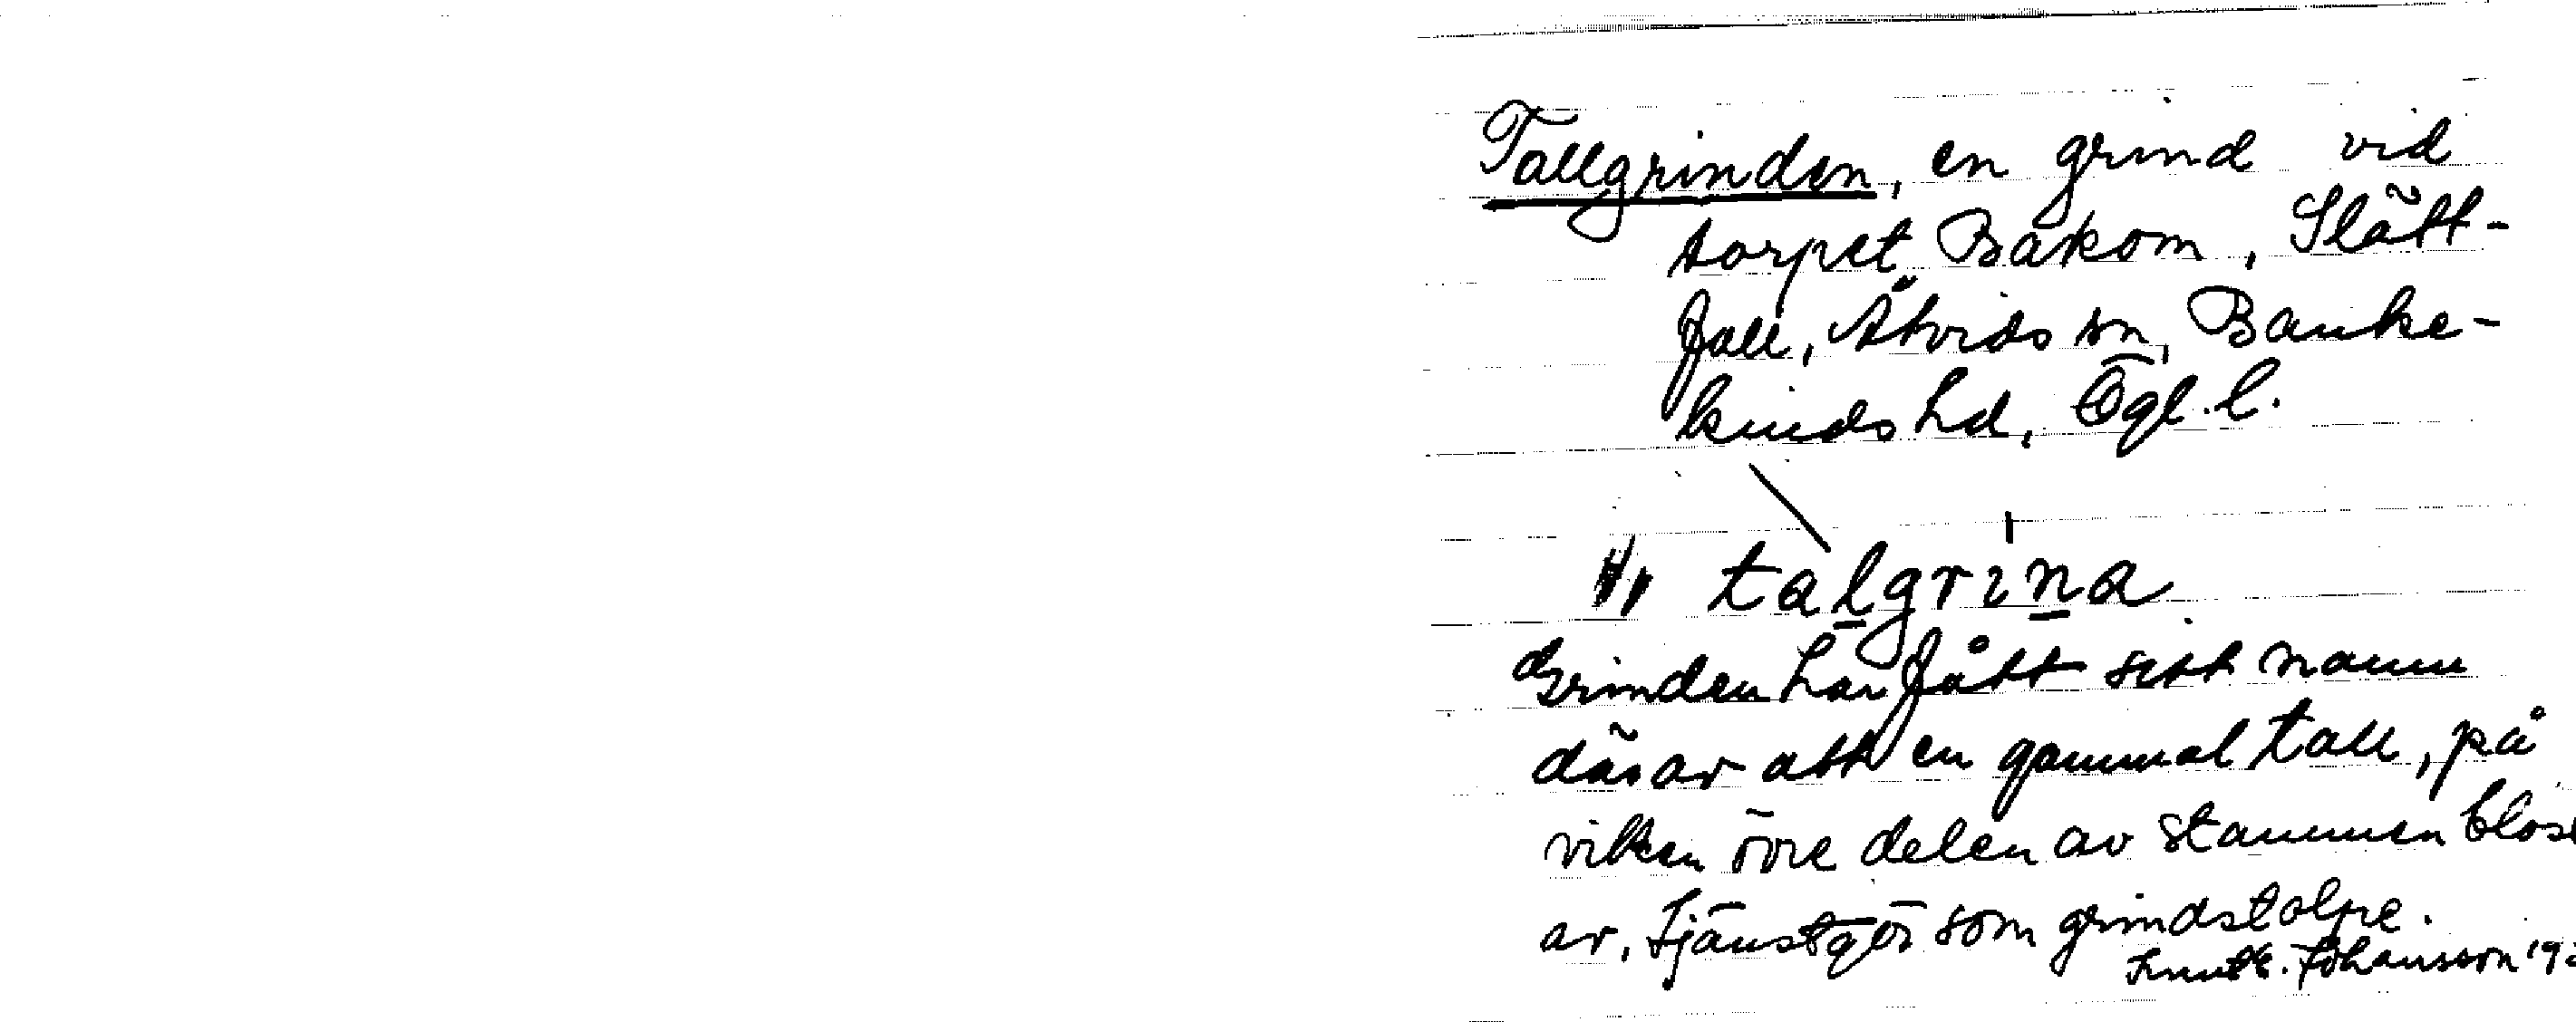 Tallgrinden, en grind vid
torpet Bakom, Slätt-
fall, Åtvids sn, Banke-
kinds hd, Ögl. l.
talgrina
Grinden har fått sitt namn
därav att en gammal tall, på
vilken övre delen av stammen blåst
av, tjänstgör som grindstolpe.
Knut E. Johansson 19